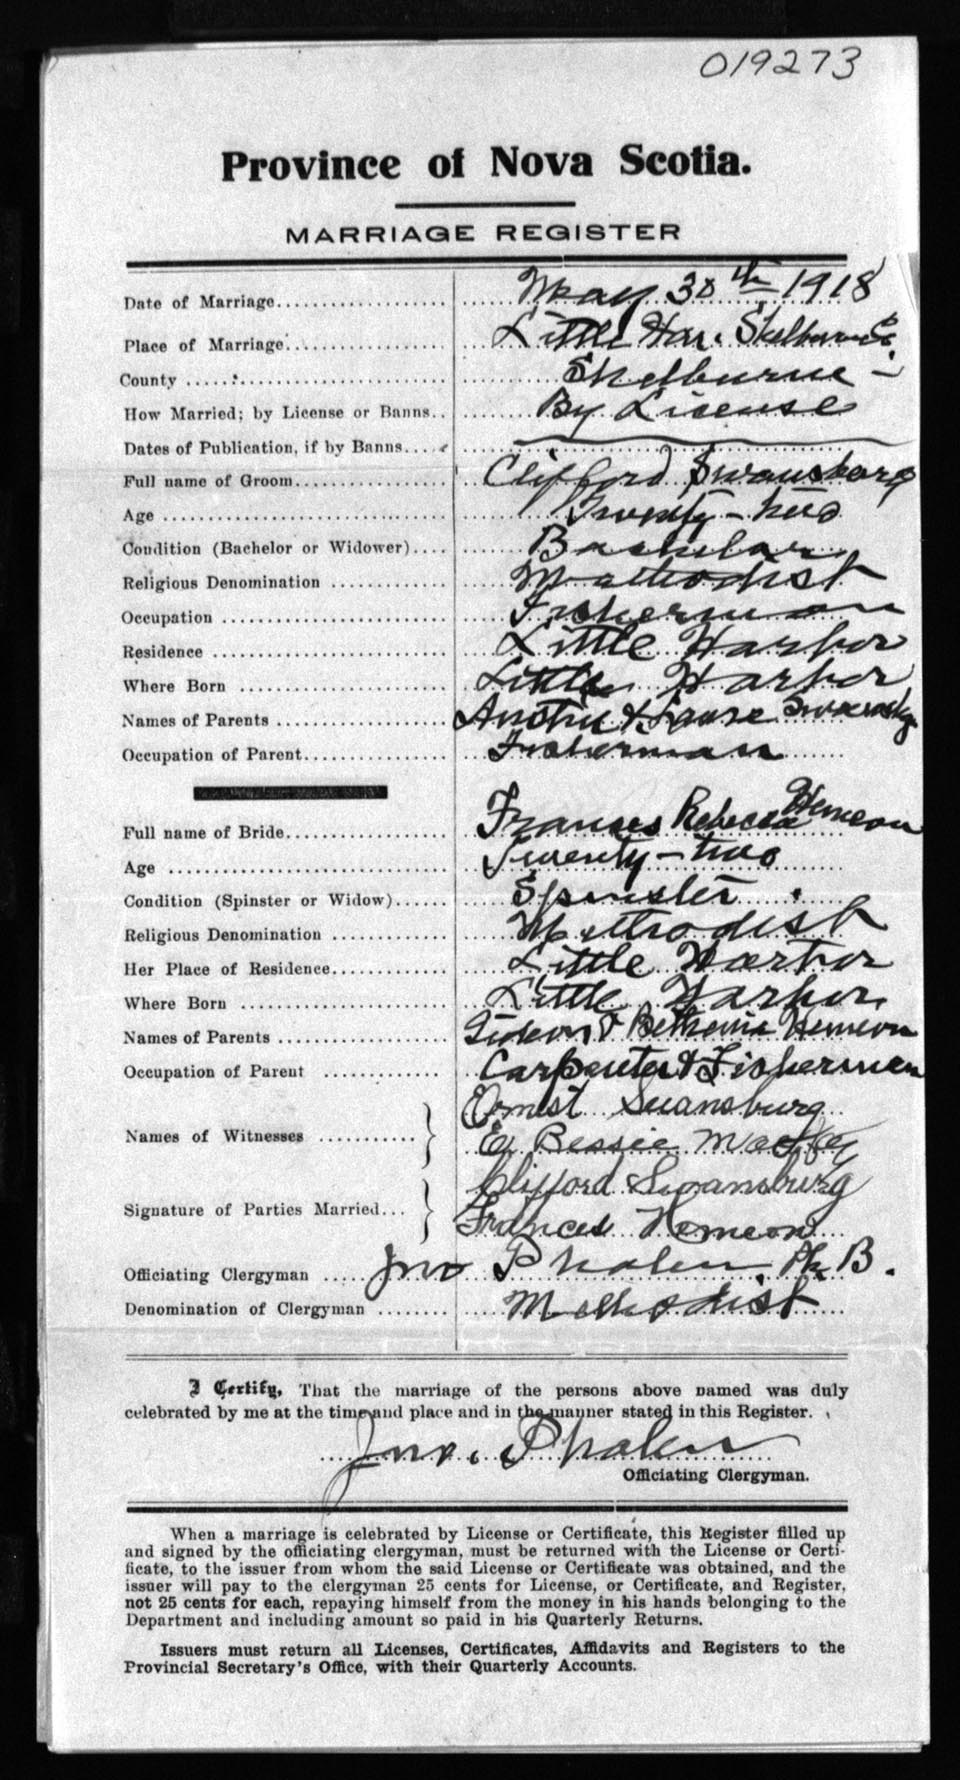 019273
Province of Nova Scotia.
MARRIAGE REGISTER
Date of Marriage May 30th 1918
Place of Marriage Little Har. Shelburne Co.
County Shelburne
How Married; by License or Banns By License
Dates of Publication, if by Banns
Full name of Groom Clifford Swansburg
Age Twenty-two
Condition (Bachelor or Widower) Bachelor
Religious Denomination Methodist
Occupation Fisherman
Residence Little Harbor
Where Born Little Harbor
Names of Parents Austin & Swansburg
Occupation of Parent Fisherman
Full name of Bride Frances Rebecca Hemeon
Age Twenty-two
Condition (Spinster or Widow) Spinster
Religious Denomination Methodist
Her Place of Residence Little Harbor
Where Born Little Harbor
Names of Parents Gideon & Bethenia Hemeon
Occupation of Parent Carpenter & Fisherman
Names of Witnesses Ernest Swansburg
E. Bessie
Signature of Parties Married Clifford Swansburg
Frances Hemeon
Officiating Clergyman Jno Phalen Ph. B.
Denomination of Clergyman Methodist
I Certify, That the marriage of the persons above named was duly
celebrated by me at the time and place and in the manner stated in this Register.
Jno. Phalen
Officiating Clergyman.
When a marriage is celebrated by License or Certificate, this Register filled up
and signed by the officiating clergyman, must be returned with the License or Certi-
ficate, to the issuer from whom the said License or Certificate was obtained, and the
issuer will pay to the clergyman 25 cents for License, or Certificate, and Register,
not 25 cents for each, repaying himself from the money in his hands belonging to the
Department and including amount so paid in his Quarterly Returns.
Issuers must return all Licenses, Certificates, Affidavits and Registers to the
Provincial Secretary's Office, with their Quarterly Accounts.